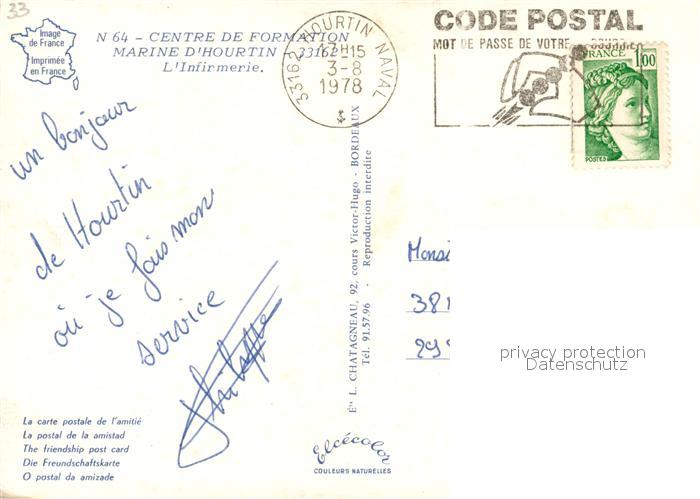 33
Image
de France
Imprimée
en France
N 64 – CENTRE DE FORMATION
MARINE D'HOURTIN – 33162
L'Infirmerie.
33162 HOURTIN NAVAL
17H15
3-8
1978
CODE POSTAL
MOT DE PASSE DE VOTRE COURRIER
FRANCE
1,00
POSTES
un bonjour
de Hourtin
où je fais mon
service
Philippe
Éts L. CHATAGNEAU, 92, cours Victor-Hugo - BORDEAUX
Tél. 91.57.96 - Reproduction interdite
Monsi
38
29
privacy protection
Datenschutz
La carte postale de l'amitié
La postal de la amistad
The friendship post card
Die Freundschaftskarte
O postal da amizade
Elcécolor
COULEURS NATURELLES